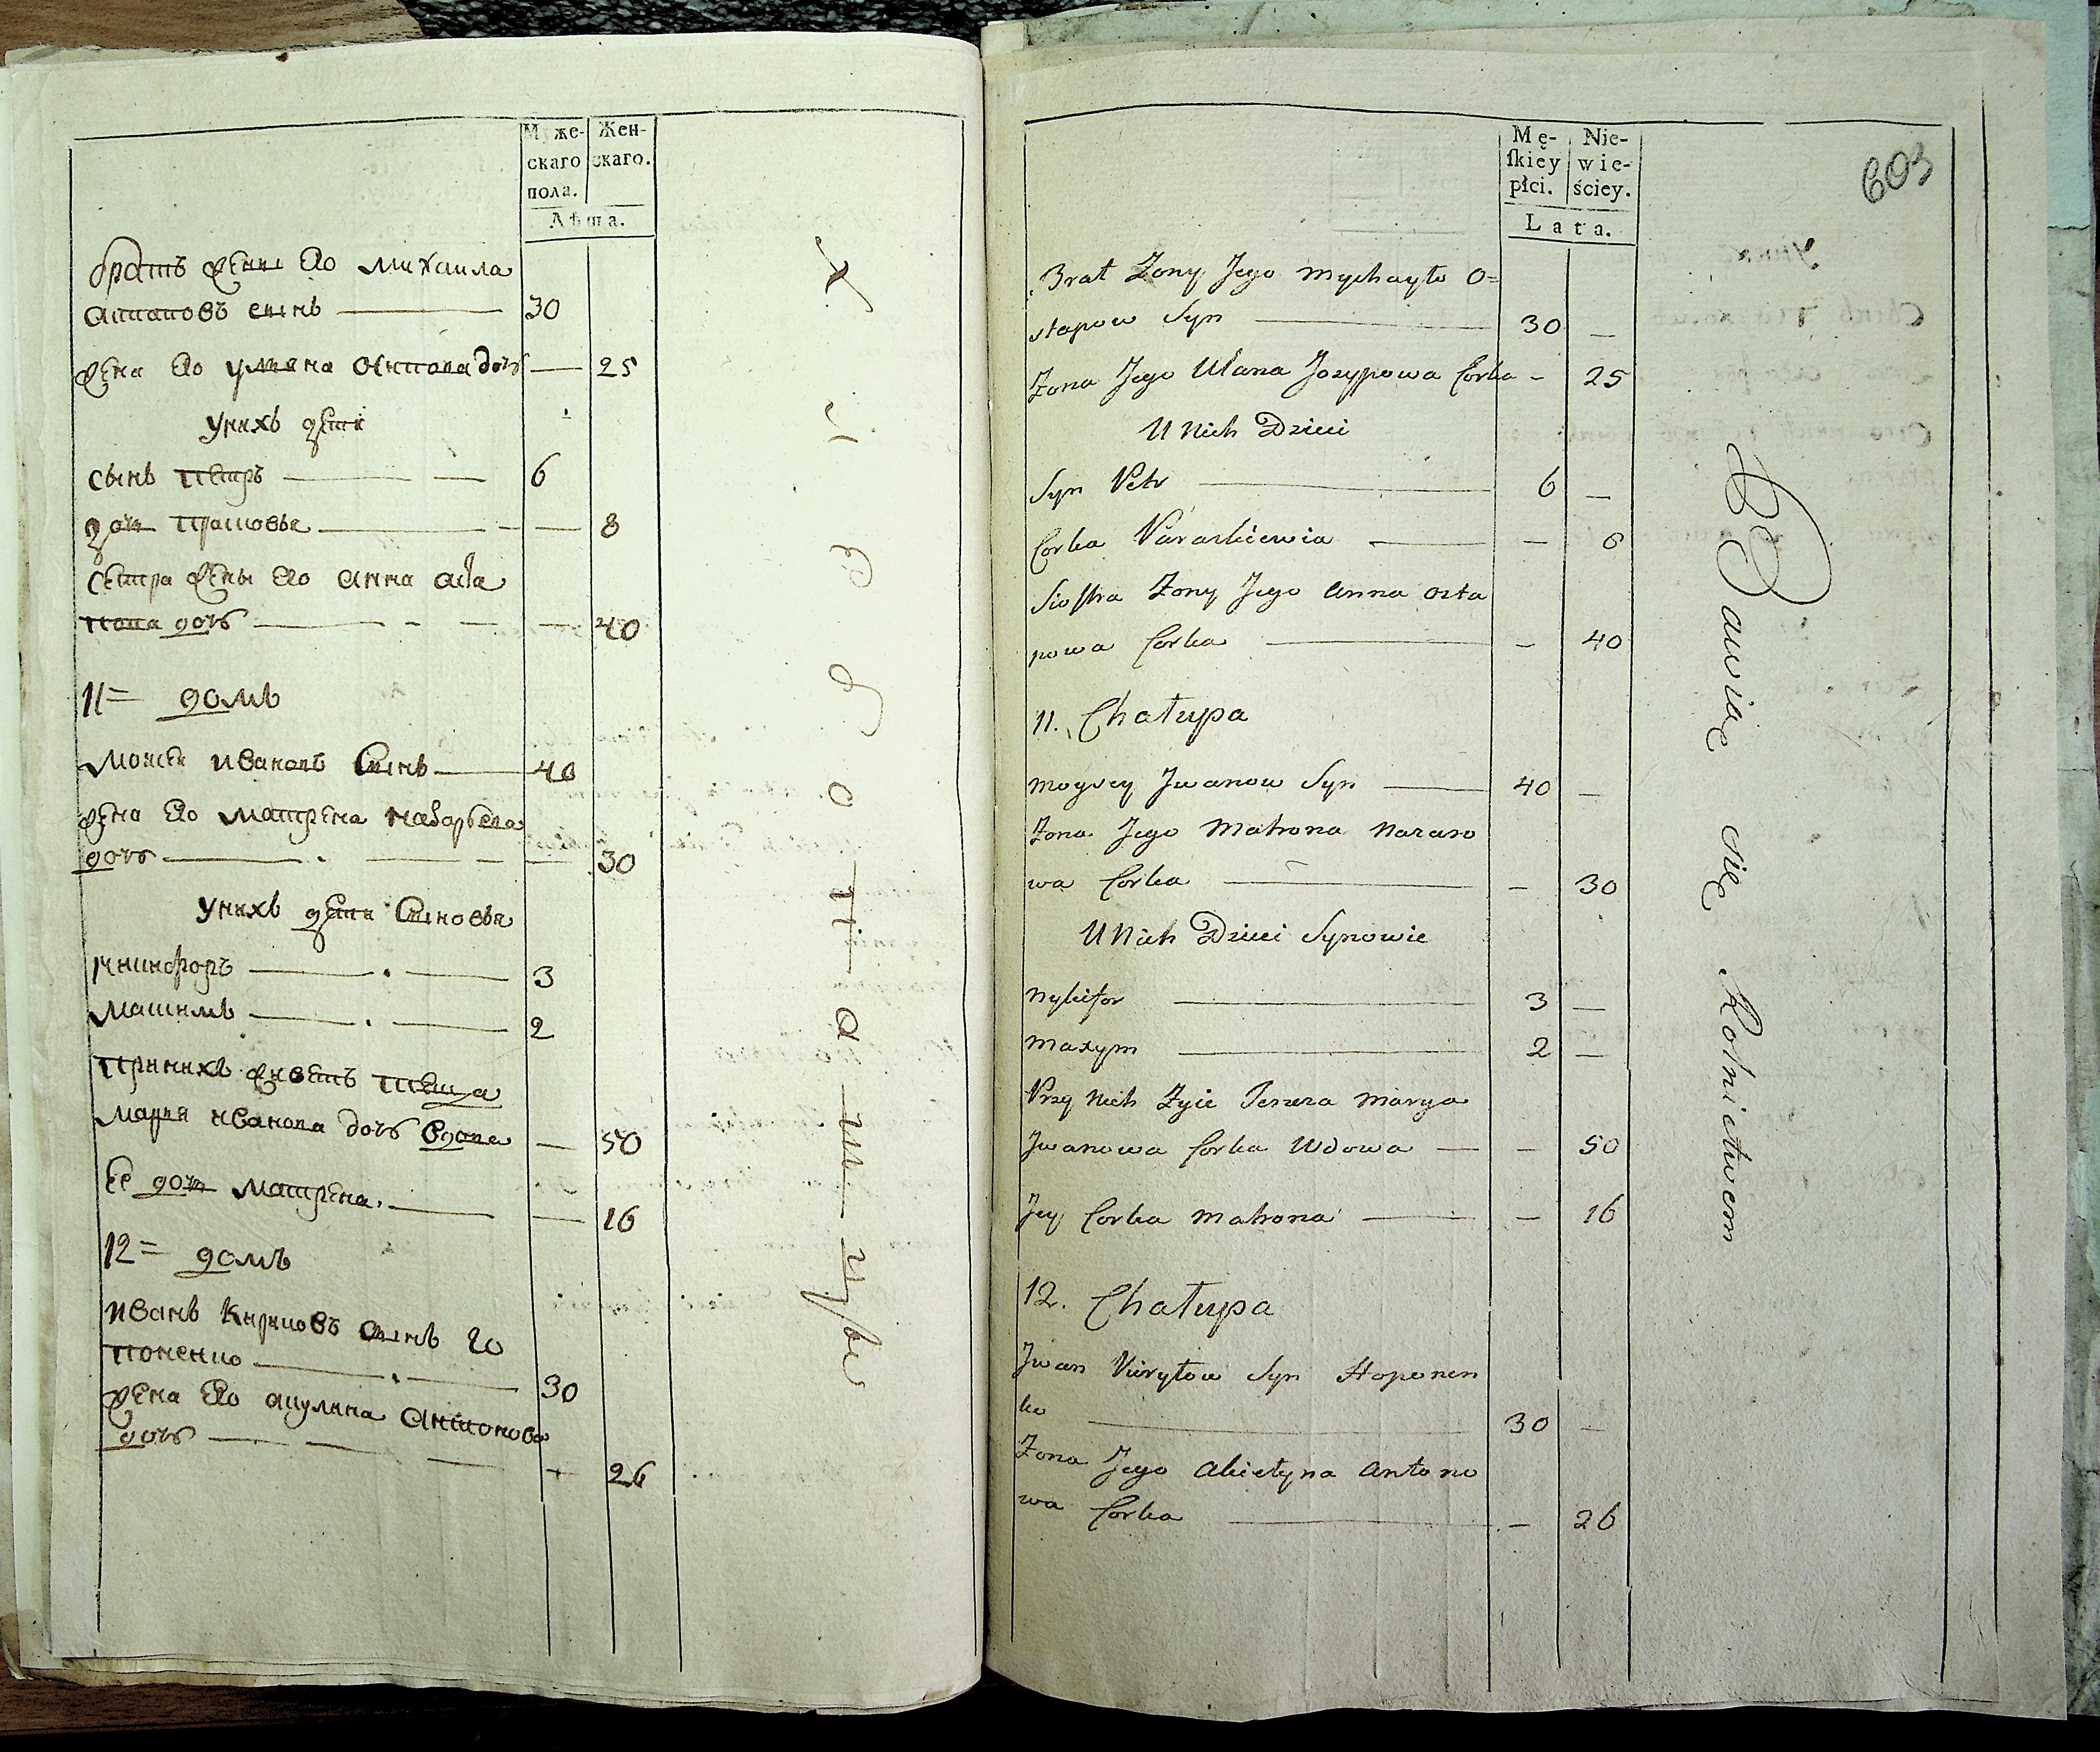 Муже-
скаго
пола.
Жен-
скаго.
Лѣта.
братъ жены его Михаила
Астаповъ сынъ 30
жена его Ульяна Осипова дочь — 25
У нихъ дети
сынъ Петръ 6
дочь Прасковья — 8
сестра жены его Анна Аста
пова дочь — 40
11= домъ
Моисей Ивановъ Сынъ 40
жена его Матрена Назарьева
дочь — 30
У нихъ дети Сыновья
Никифоръ 3
Максимъ 2
При нихъ живетъ теща
Марья Иванова дочь вдова — 50
Ее дочь Матрена — 16
12= домъ
Иванъ Кириловъ сынъ Го
поненко 30
жена его Акулина Антонова
дочь — 26
Хлебопашцы
603
Mę-
ſkiey
płci.
Nie-
wie-
ściey.
Lata.
Brat Zony Jego Mychayło O=
stapow Syn 30 —
Zona Jego Ulana Jozypowa Corka — 25
U Nich Dzieci
Syn Petr 6 —
Corka Paraskiewia — 8
Siostra Zony Jego Anna Osta
powa Corka — 40
11. Chałupa
Moysey Jwanow Syn 40 —
Zona Jego Matrona Nazaro
wa Corka — 30
U Nich Dzieci Synowie
Nykifor 3 —
Maxym 2 —
Przy Nich Zyie Teszcza Marya
Jwanowa Corka Wdowa — 50
Jey Corka Matrona — 16
12. Chałupa
Jwan Kiryłow Syn Hoponen
ko 30 —
Zona Jego Akiełyna Antono
wa Corka — 26
Bawiąc się Rolnictwem